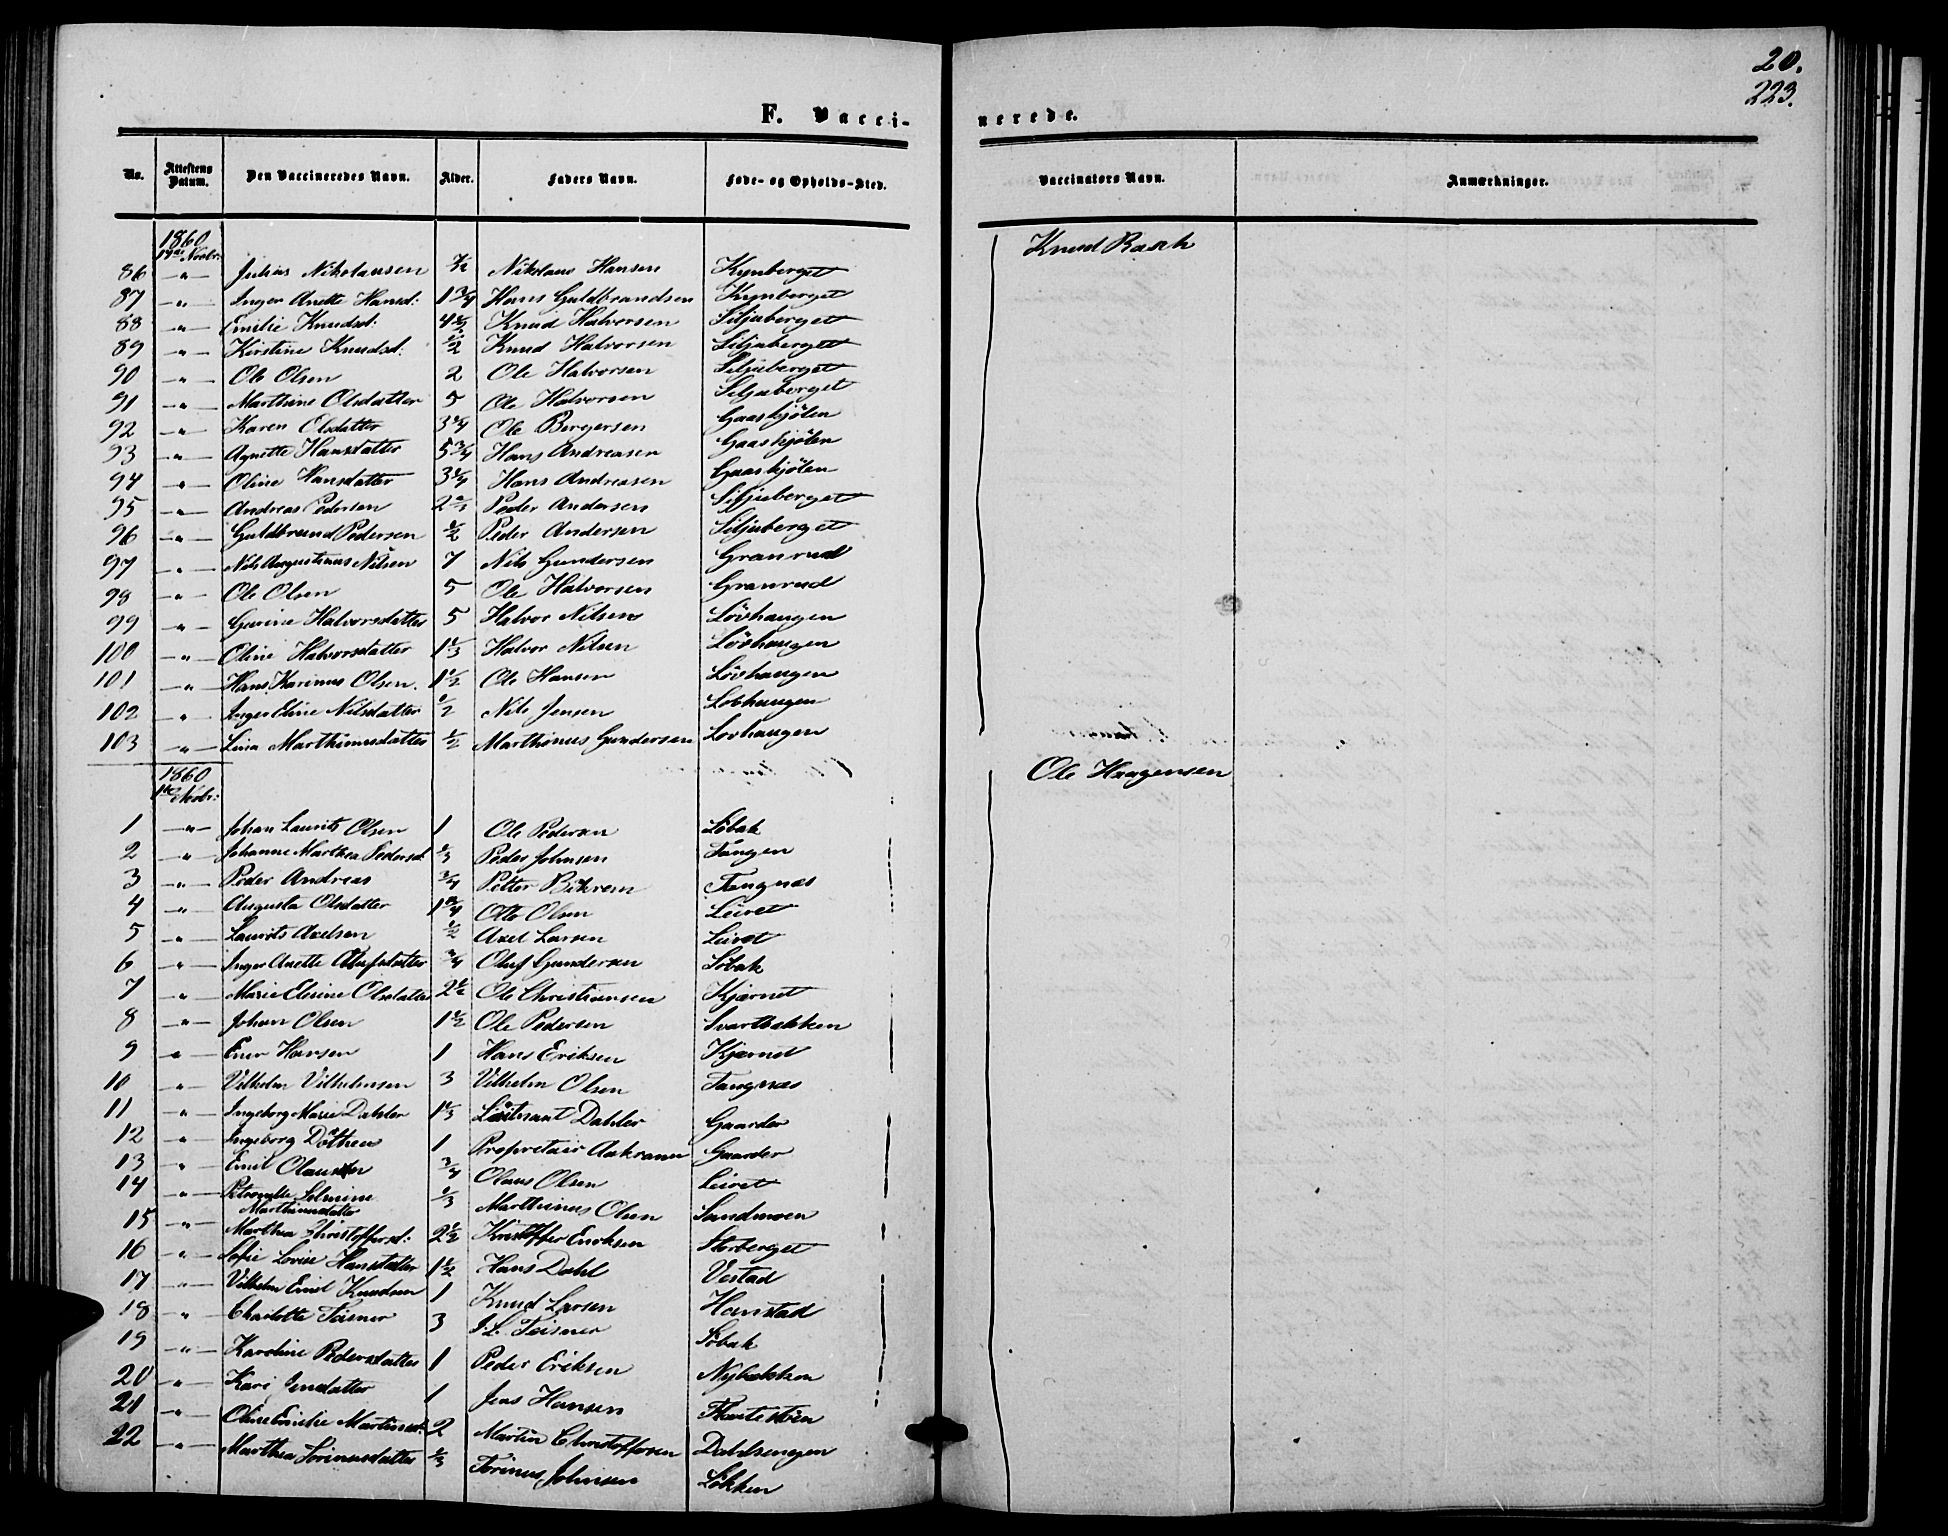 20.
223.
F. Vacci-
nerede.
No. Attestens Datum. Den Vaccineredes Navn. Alder. Faders Navn. Føde- og Opholds-Sted. Vaccinators Navn. Anmærkninger.
1860
Novbr: Knud Rasch
86 -"- Julius Nikolausen Nikolaus Hansen Kynberget
87 -"- Inger Anette Hansd: 1 3/4 Hans Guldbrandsen Kynberget
88 -"- Emilie Knudsd: Knud Halvorsen Siljuberget
89 -"- Kirstine Knudsd: 1/2 Knud Halvorsen Siljuberget
90 -"- Ole Olsen 2 Ole Halvorsen Siljuberget
91 -"- Marthine Olsdatter 5 Ole Halvorsen Siljuberget
92 -"- Karen Olsdatter 3 1/4 Ole Bergersen Gaaskjølen
93 -"- Agnette Hansdatter 5 3/4 Hans Andreasen Gaaskjølen
94 -"- Oline Hansdatter 3 1/4 Hans Andreasen Gaaskjølen
95 -"- Andreas Pedersen Peder Andersen Siljuberget
96 -"- Guldbrand Pedersen 1/2 Peder Andersen Siljuberget
97 -"- Nils Augustinus Nilsen 7 Nils Gundersen Granrud
98 -"- Ole Olsen 5 Ole Halvorsen Granrud
99 -"- Gurine Halvorsdatter 5 Halvor Nilsen Lövhaugen
100 -"- Oline Halvorsdatter 1 1/3 Halvor Nilsen Lövhaugen
101 -"- Hans Karinus Olsen. 1 1/2 Ole Hansen Lövhaugen
102 -"- Inger Eline Nilsdatter 1/2 Nils Jensen Lövhaugen
103 -"- Lina Marthinusdatter 1/2 Marthinus Gundersen Lovhaugen
1860
1ste Novbr: Ole Haagensen
1 -"- Johan Laurits Olsen 1 Ole Pedersen Söbak
2 -"- Johanne Marthea Pedersd. 1/3 Peder Johnsen Tangen
3 -"- Peder Andreas 3/4 Petter Tangnæs
4 -"- Augusta Olsdatter 1 3/4 Otto Olsen Leiret
5 -"- Laurits Axelsen 1/2 Axel Larsen Leiret
6 -"- Inger Anette Olufsdatter 3/4 Oluf Gundersen Söbak
7 -"- Marie Elesine Olsdatter 2 1/2 Ole Christiansen Kjærnet
8 -"- Johan Olsen 1 1/2 Ole Pedersen Svartbækken
9 -"- Hansen 1 Hans Eriksen Kjærnet
10 -"- Vilhelm Vilhelmsen 3 Vilhelm Olsen Tangnæs
11 -"- Ingeborg Marie Dahler 1 1/3 Löitnant Dahler Gaarder
12 -"- Ingeborg Döthen 1 Proprietair Aakrann Gaarder
13 -"- Emil Olausen 3/4 Olaus Olsen Leiret
14 -"- Petronelle Selmine Marthinusdatter 1/3 Marthinus Olsen Sandmoen
15 -"- Marthea Christoffersd: 2 1/2 Kristoffer Eriksen Storberget
16 -"- Sofie Lovise Hansdatter 1 1/2 Hans Dahl Vestad
17 -"- Vilhelm Emil Knudsen 1 Knud Larsen Hanstad
18 -"- Charlotte Teisner 3 J. L. Teisner Söbak
19 -"- Karoline Pedersdatter 1 Peder Eriksen Nybækken
20 -"- Kari Jensdatter 1 Jens Hansen
21 -"- Oline Emilie Martinsd. 2 Martin Christoffersen Dahlsengen
22 -"- Marthea Torinusdatter 1/3 Torinus Johnsen Lökken